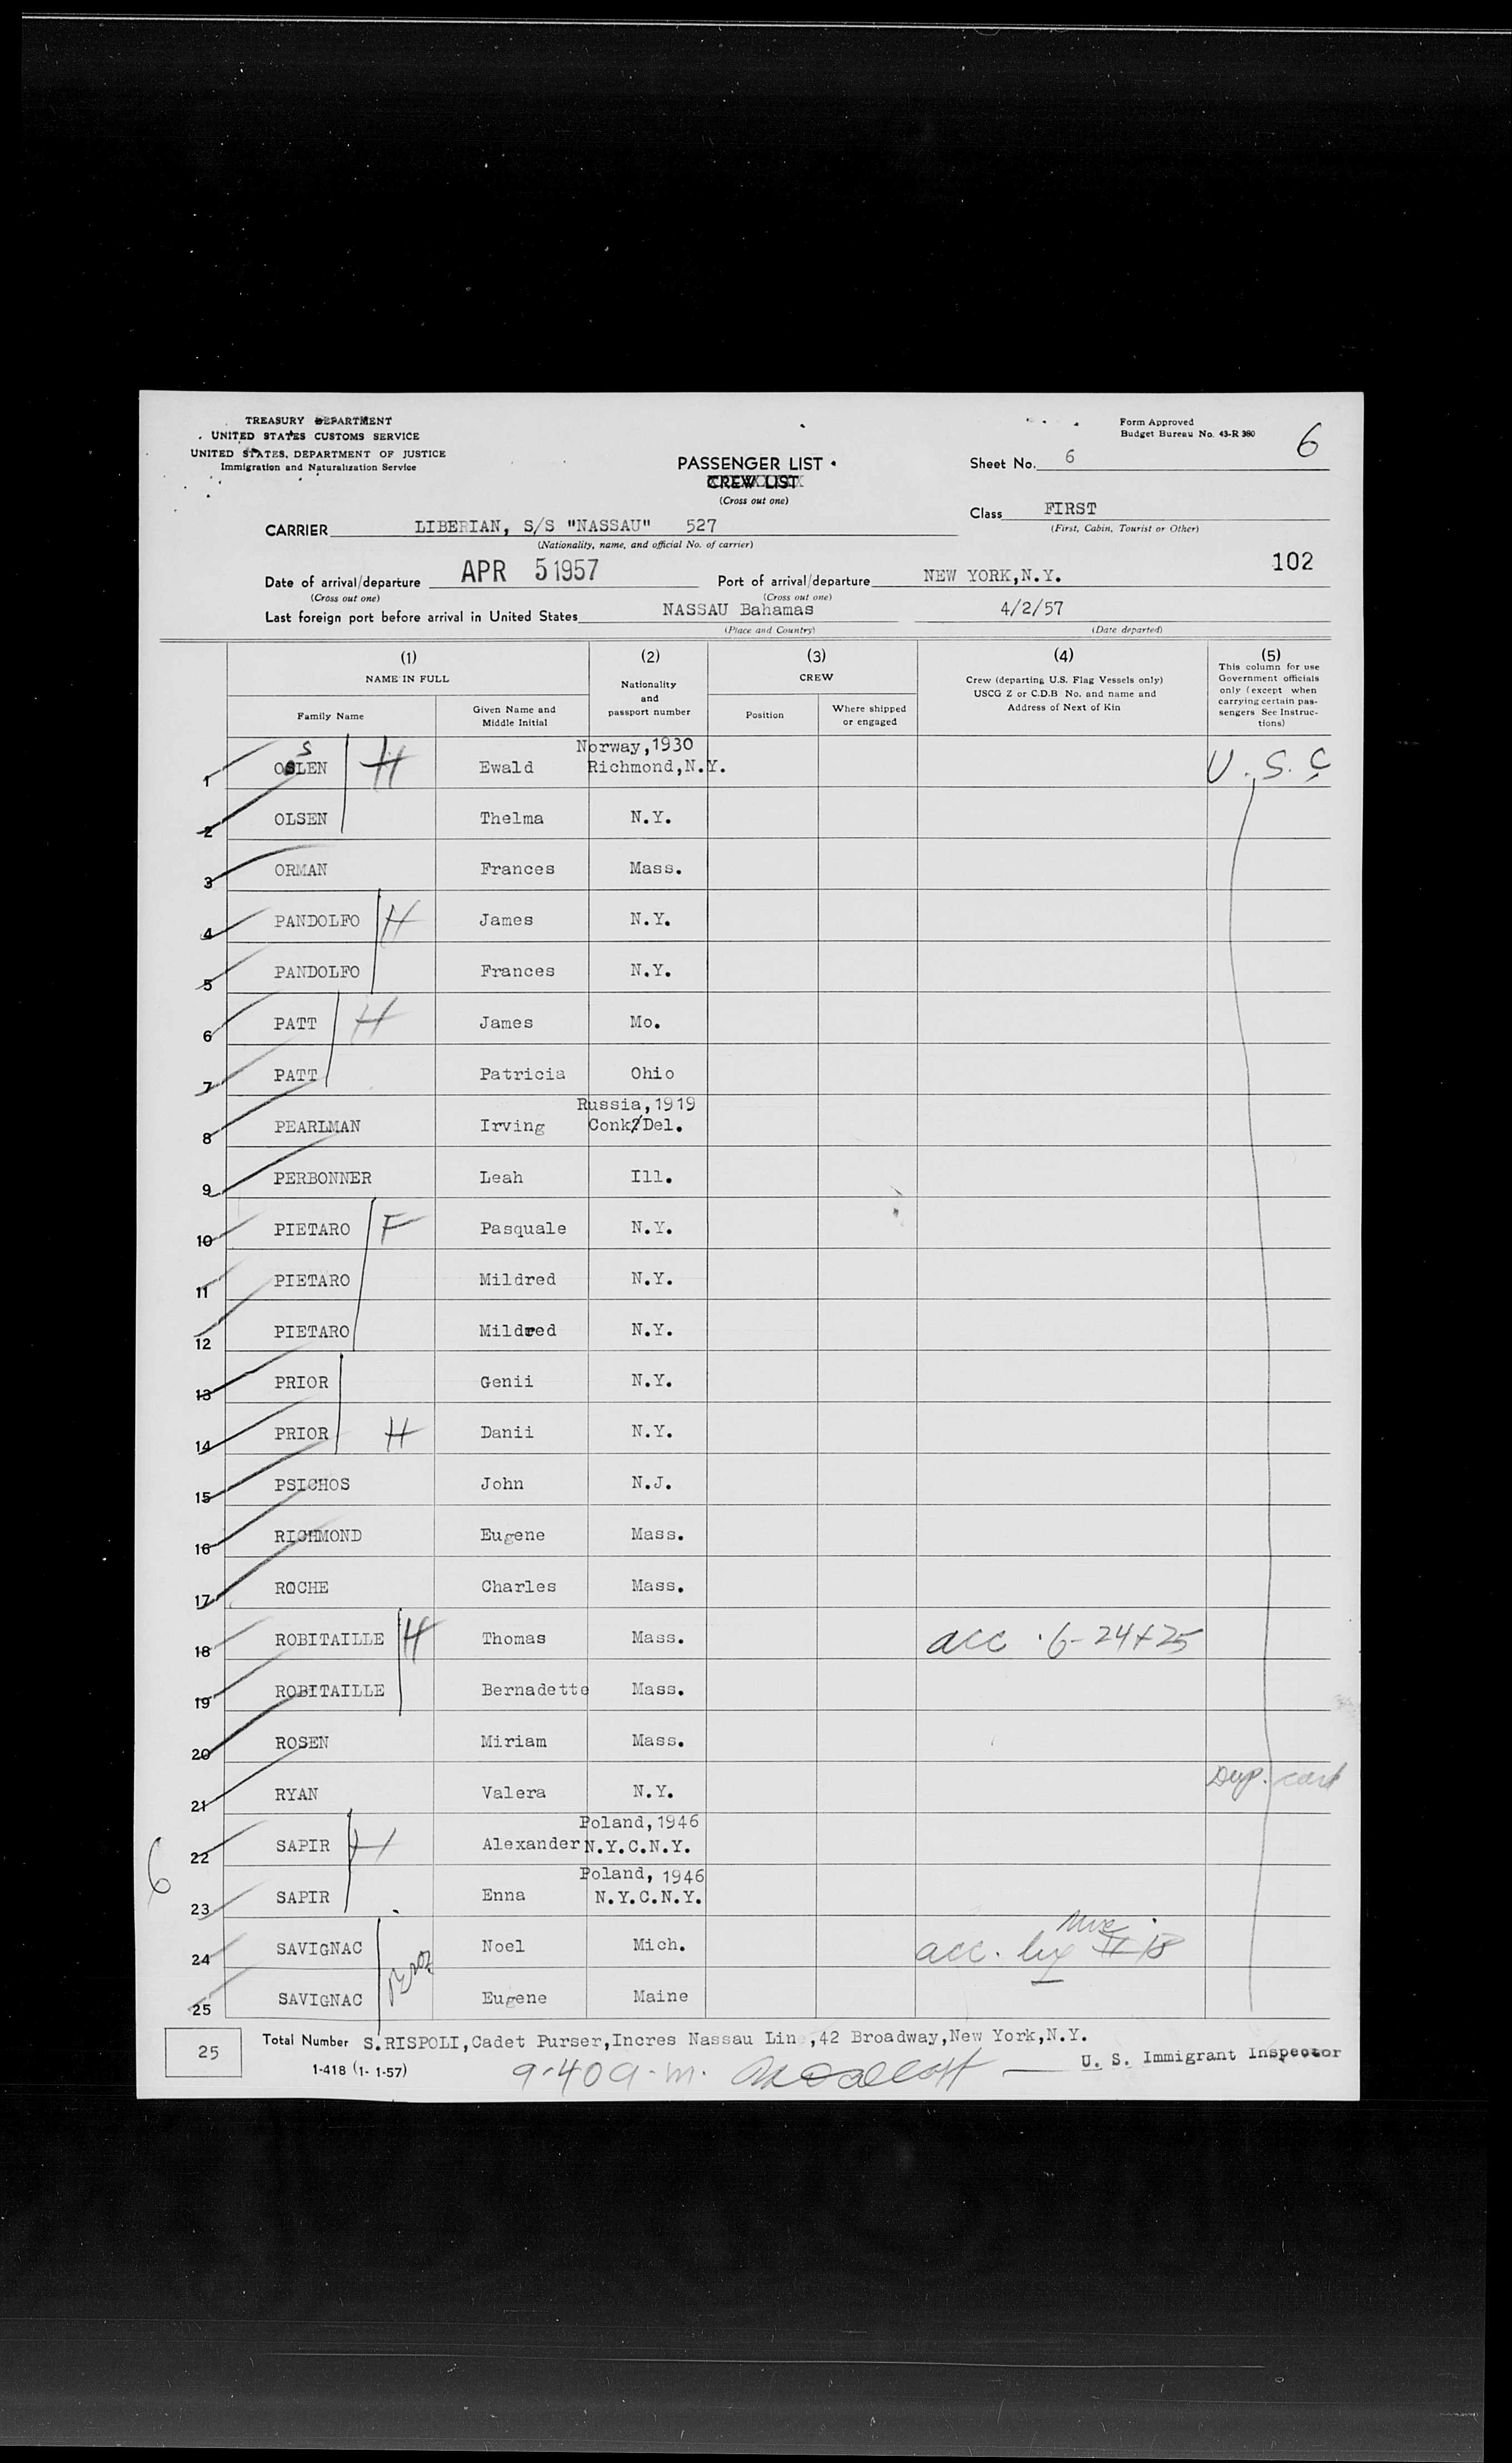 TREASURY DEPARTMENT
UNITED STATES CUSTOMS SERVICE
UNITED STATES, DEPARTMENT OF JUSTICE
Immigration and Naturalization Service
Form Approved
Budget Bureau No. 43-R 380
6
PASSENGER LIST
CREW LIST
(Cross out one)
Sheet No. 6
Class FIRST
(First, Cabin, Tourist or Other)
CARRIER LIBERIAN, S/S "NASSAU" 527
(Nationality, name, and official No. of carrier)
102
Date of arrival/departure APR 5 1957 Port of arrival/departure NEW YORK,N.Y.
(Cross out one) (Cross out one)
Last foreign port before arrival in United States NASSAU Bahamas 4/2/57
(Place and Country) (Date departed)
(1) (2) (3) (4) (5)
NAME IN FULL Nationality and passport number CREW Crew (departing U.S. Flag Vessels only) USCG Z or C.D.B No. and name and Address of Next of Kin This column for use Government officials only (except when carrying certain passengers See Instructions)
Family Name Given Name and Middle Initial Position Where shipped or engaged
1 OLSEN H Ewald Norway,1930 Richmond,N.Y. U.S.C
2 OLSEN Thelma N.Y.
3 ORMAN Frances Mass.
4 PANDOLFO H James N.Y.
5 PANDOLFO Frances N.Y.
6 PATT H James Mo.
7 PATT Patricia Ohio
8 PEARLMAN Irving Russia,1919 Conk/Del.
9 PERBONNER Leah Ill.
10 PIETARO F Pasquale N.Y.
11 PIETARO Mildred N.Y.
12 PIETARO Mildred N.Y.
13 PRIOR Genii N.Y.
14 PRIOR H Danii N.Y.
15 PSICHOS John N.J.
16 RICHMOND Eugene Mass.
17 ROCHE Charles Mass.
18 ROBITAILLE H Thomas Mass. acc 6-24+25
19 ROBITAILLE Bernadette Mass.
20 ROSEN Miriam Mass.
21 RYAN Valera N.Y. Dup. card
22 SAPIR H Alexander Poland,1946 N.Y.C.N.Y.
6
23 SAPIR Enna Poland, 1946 N.Y.C.N.Y.
24 SAVIGNAC Noel Mich. acc. by 18
25 SAVIGNAC Eugene Maine
25 Total Number S.RISPOLI,Cadet Purser,Incres Nassau Lin ,42 Broadway,New York,N.Y.
1-418 (1-1-57) 9.40 a.m. U. S. Immigrant Inspector